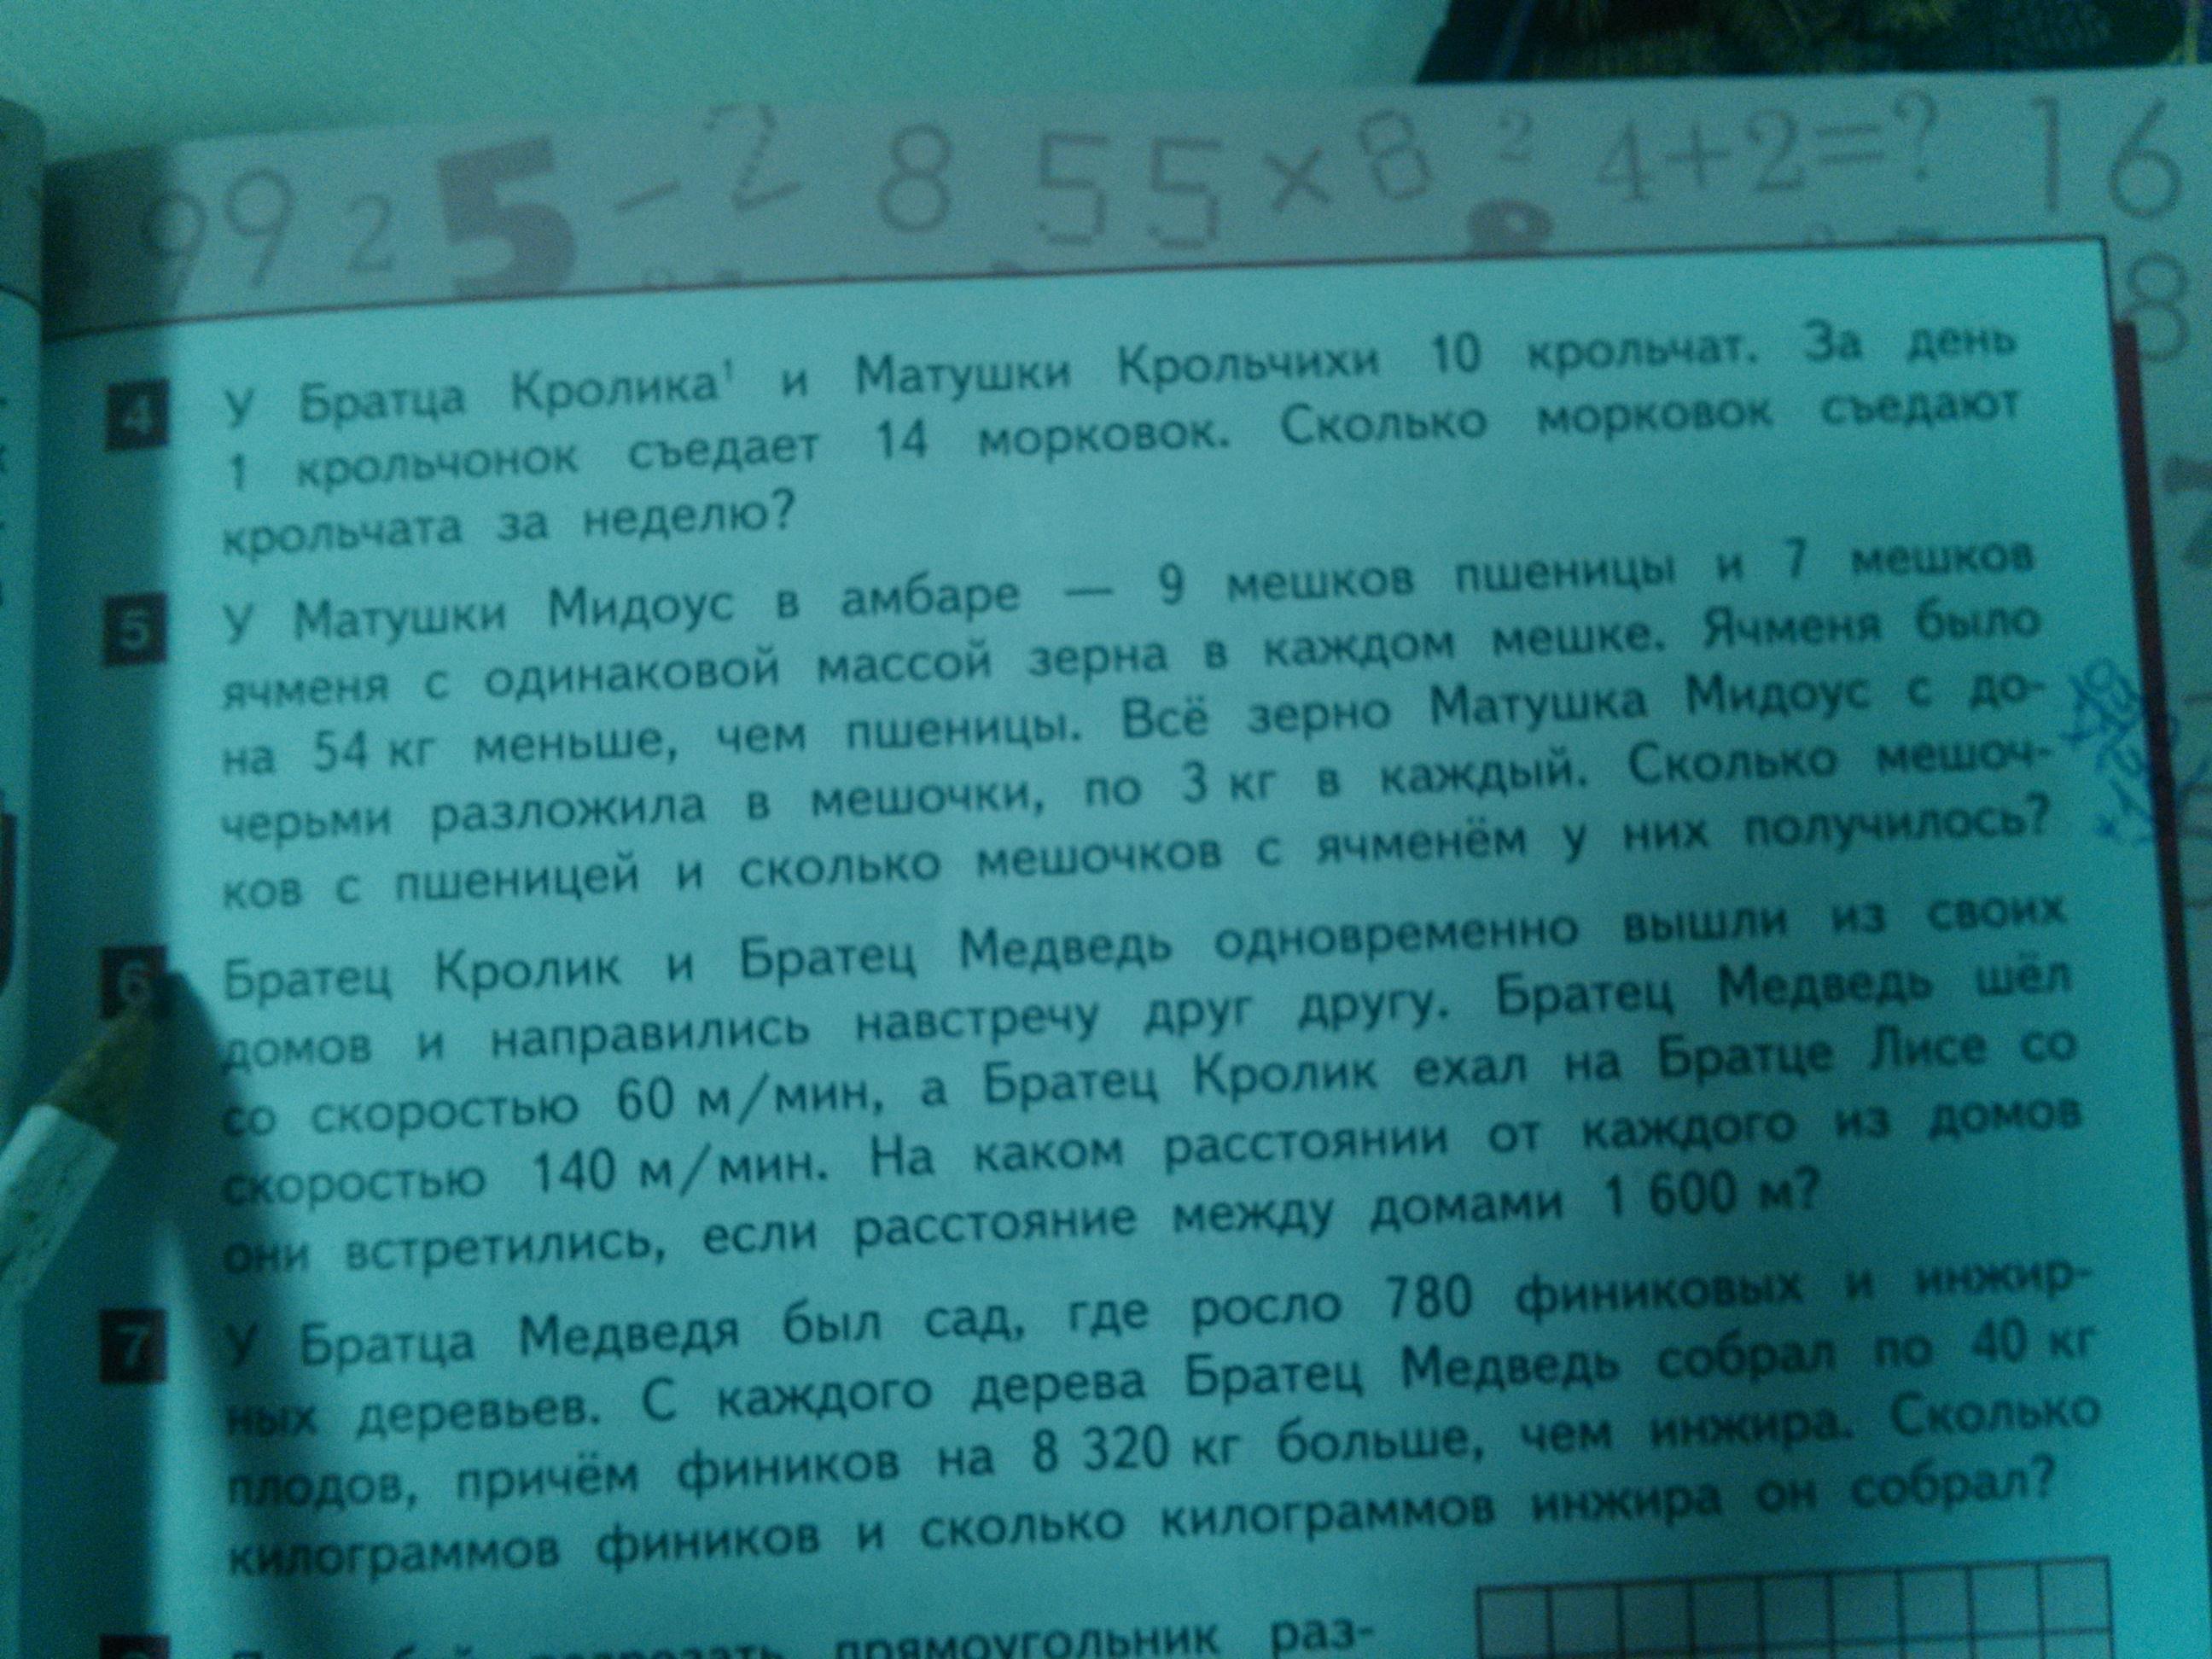 99 2 5 - 2 8 55 × 8 2 4+2=? 16
8
4 У Братца Кролика¹ и Матушки Крольчихи 10 крольчат. За день
1 крольчонок съедает 14 морковок. Сколько морковок съедают
крольчата за неделю?
5 У Матушки Мидоус в амбаре — 9 мешков пшеницы и 7 мешков
ячменя с одинаковой массой зерна в каждом мешке. Ячменя было
на 54 кг меньше, чем пшеницы. Всё зерно Матушка Мидоус с до-
черьми разложила в мешочки, по 3 кг в каждый. Сколько мешоч-
ков с пшеницей и сколько мешочков с ячменём у них получилось?
6 Братец Кролик и Братец Медведь одновременно вышли из своих
домов и направились навстречу друг другу. Братец Медведь шёл
со скоростью 60 м/мин, а Братец Кролик ехал на Братце Лисе со
скоростью 140 м/мин. На каком расстоянии от каждого из домов
они встретились, если расстояние между домами 1 600 м?
7 У Братца Медведя был сад, где росло 780 финиковых и инжир-
ных деревьев. С каждого дерева Братец Медведь собрал по 40 кг
плодов, причём фиников на 8 320 кг больше, чем инжира. Сколько
килограммов фиников и сколько килограммов инжира он собрал?
прямоугольник раз-